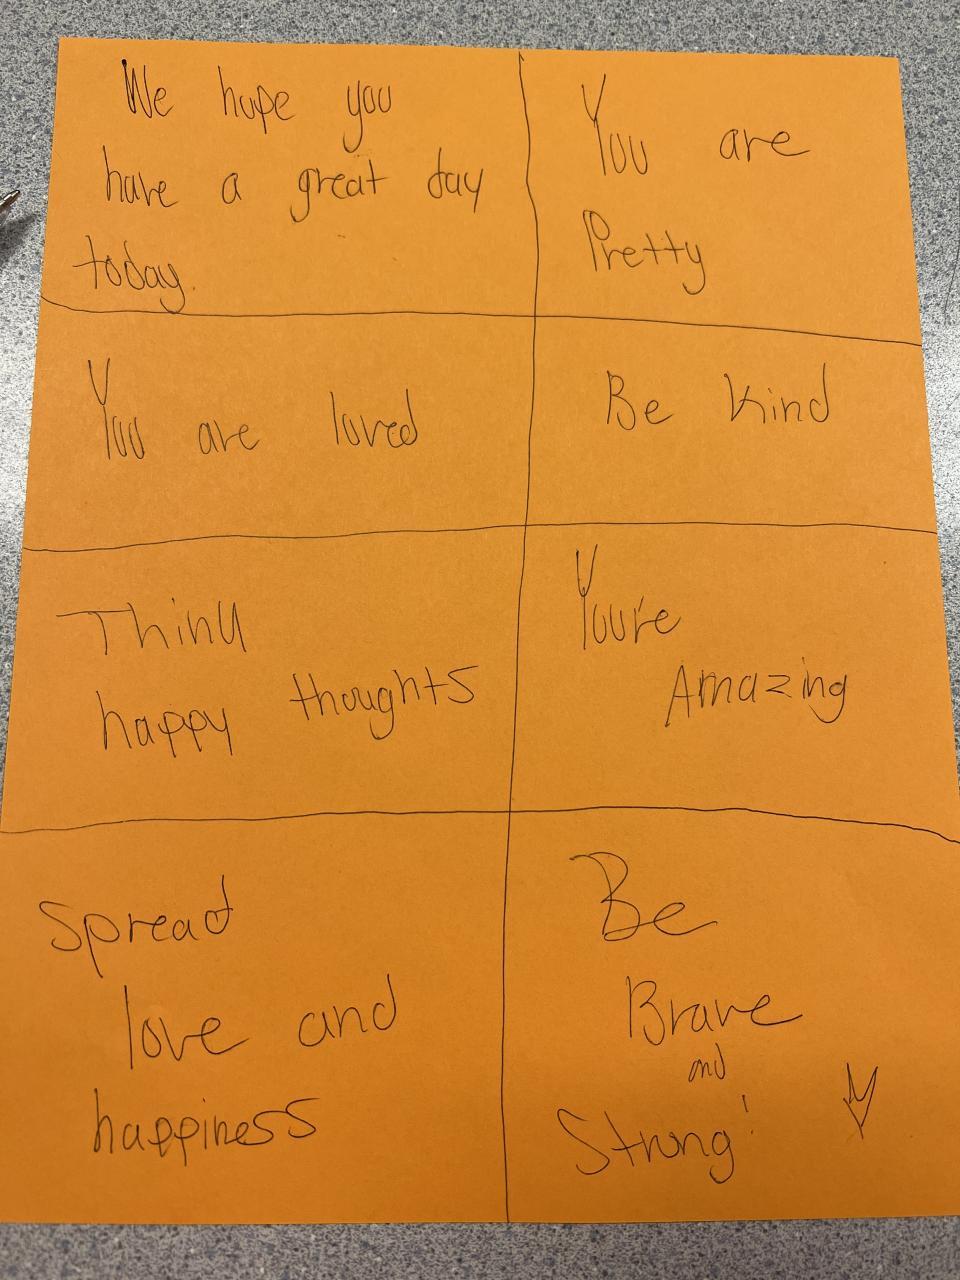 We hope you
have a great day
today.
You are
Pretty
You are loved
Be Kind
Think
happy thoughts
You're
Amazing
Spread
love and
happiness
Be
Brave
and
Strong!